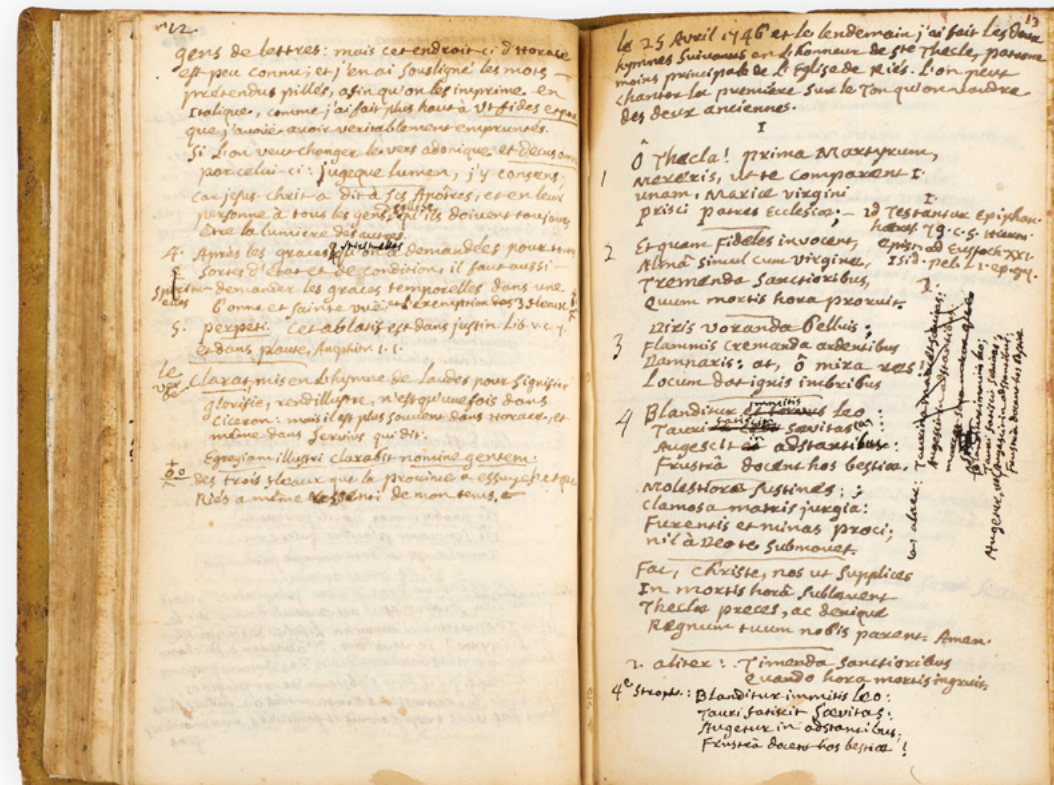 12.
gens de lettres: mais cet endroit-ci d'Horace
est peu connu; et j'en ai sousligné les mots
prétendus pillés, afin qu'on les imprime en
Italique, comme j'ai fait plus haut à Ut fides
que j'avoie avoir veritablement empruntés.
Si l'on veut changer le vers adonique et decus
par celui-ci: jugeque lumen, j'y consens.
car jesus-chrit a dit à ses Apôtres, et en leur
personne à tous les gens qu'ils doivent toujours
être la lumière des autres.
4. Après les graces spirituelles qu'on a demandées pour
sortes d'Etat et de conditions, il faut aussi
demander les graces temporelles dans une
bonne et sainte vuë, et l'exemption des 3 fleaux
5. perpeti. cet ablatif est dans justin lib. v. c.
et dans plaute, Amphitr. 1. 1.
le
verbe
Clarat mis en l'hymne de laudes pour signifier
glorifie, rend illustre, n'est qu'une fois dans
Ciceron: mais il est plus souvent dans Horace, et
même dans Servius qui dit:
Egregiam illustri clarabit nomine gentem.
des trois fleaux que la province a essuyé et que
Riés a même ressenti de mon tems.
13
le 25 Avril 1746 et le lendemain j'ai fait les deux
hymnes suivantes en l'honneur de ste Thecle, patrone
moins principale de l'Eglise de Riés. L'on peut
chanter la première sur le Ton qu'on voudra
des deux anciennes.
I
Ô Thecla! prima Martyrum,
1 Mereris, ut te comparent I
unam, Mariæ virgini
prisci patres Ecclesiæ; - id Testantur Epiphan.
I.
hæres. 79. c. 5. Hieron.
epist. ad Eustoch. XXI.
Isid. pel. l. 1. ep.
2 Et quam Fideles invocent,
Almâ simul cum virgine,
Tremenda sanctioribus,
Quum mortis hora proruit.
Diris voranda belluis;
3 Flammis cremanda ardentibus
Damnaris: at, ô mira res!
Locum dat ignis imbribus
immitis
4 Blanditur et torvus leo
Tauri fatiscit sævitas:
Augescit adstantibus:
Frustrà docent hos bestiæ.
Molestiora sustines;
Clamosa matris jurgia:
Furentis et minas proci;
nil à Deo te submovet.
Fac, Christe, nos ut supplices
In mortis horâ sublevent
Theclæ preces, ac denique
Regnum tuum nobis parent. Amen.
2. aliter: Timenda sanctioribus
Quando hora mortis ingruit.
4e Stroph.: Blanditur immitis leo:
Tauri fatiscit sævitas:
Augetur in adstantibus;
Frustrà docent hos bestiæ!